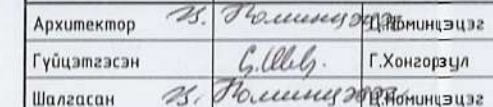 Архитектор Ц.Номинцэцэг
Гүйцэтгэсэн Г.Хонгорзул
Шалгасан Ц.Номинцэцэг